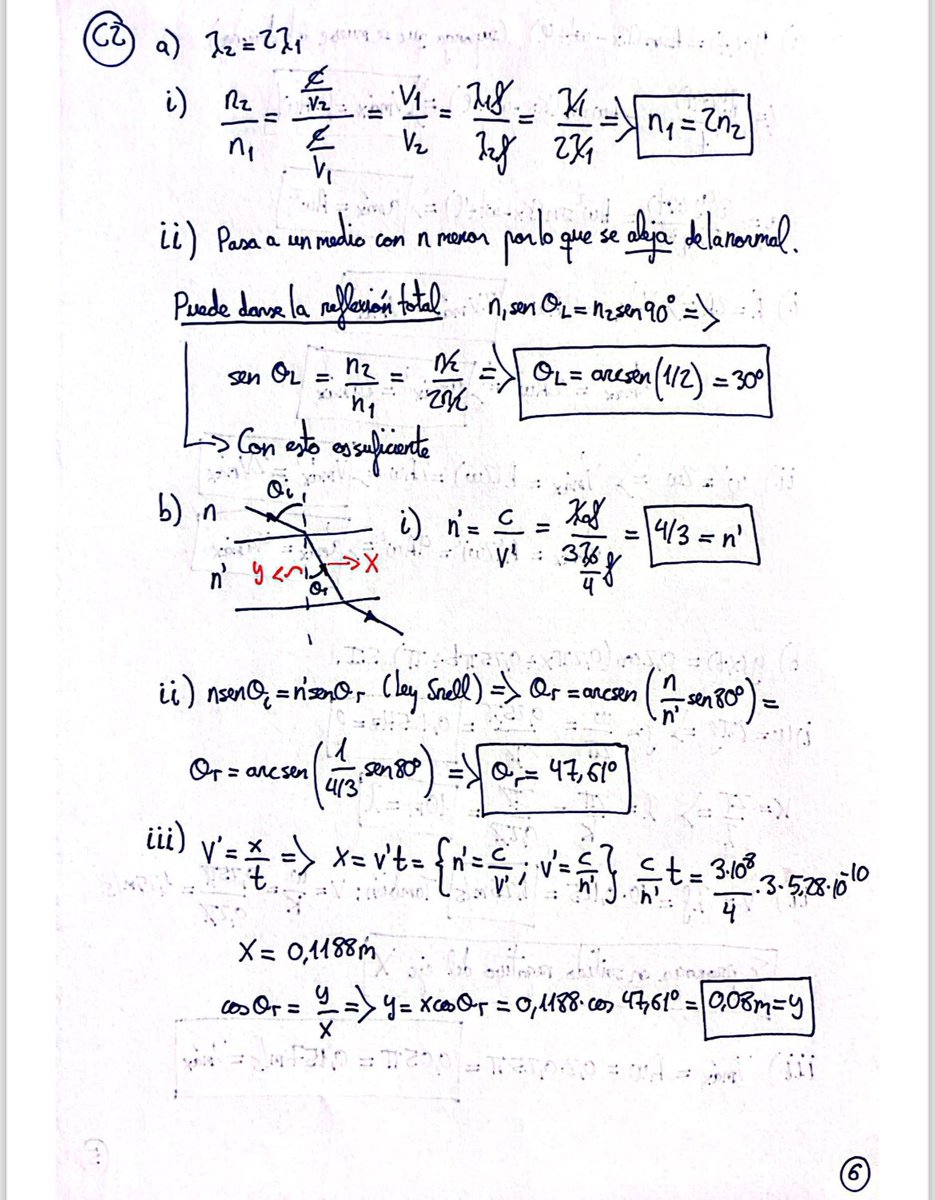 C2 a) λ₂ = 2λ₁
i) n₂/n₁ = (c/v₂)/(c/v₁) = v₁/v₂ = λ₁f/λ₂f = λ₁/2λ₁ => n₁ = 2n₂
ii) Pasa a un medio con n menor por lo que se aleja de la normal.
Puede darse la reflexión total. n₁ sen θL = n₂ sen 90° =>
sen θL = n₂/n₁ = n₂/2n₂ => θL = arcsen(1/2) = 30°
-> Con esto es suficiente
b) n θi n' y x θr i) n' = c/v' = λ₀f/(3λ₀/4 f) = 4/3 = n'
ii) n sen θi = n' sen θr (ley Snell) => θr = arcsen(n/n' sen 80°) =
θr = arcsen(1/4/3 sen 80°) => θr = 47,61°
iii) v' = x/t => x = v't = {n' = c/v' ; v' = c/n'} c/n' t = 3·10⁸/4 · 3 · 5,28·10⁻¹⁰
x = 0,1188m
cos θr = y/x => y = x cos θr = 0,1188 · cos 47,61° = 0,08m = y
6